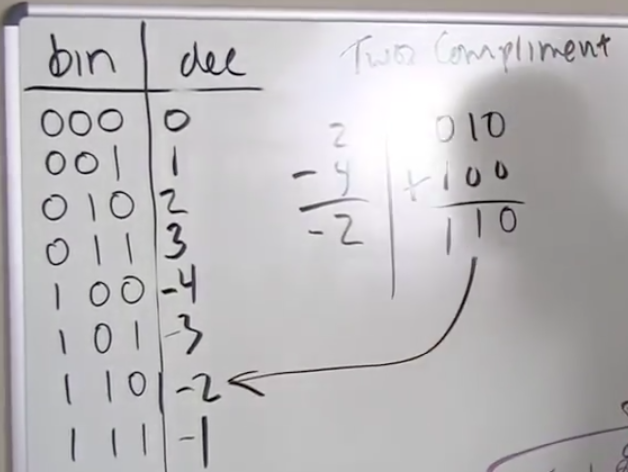 bin dec
000 0
001 1
010 2
011 3
100 -4
101 -3
110 -2
111 -1
Two Compliment
2 010
-4 +100
-2 110